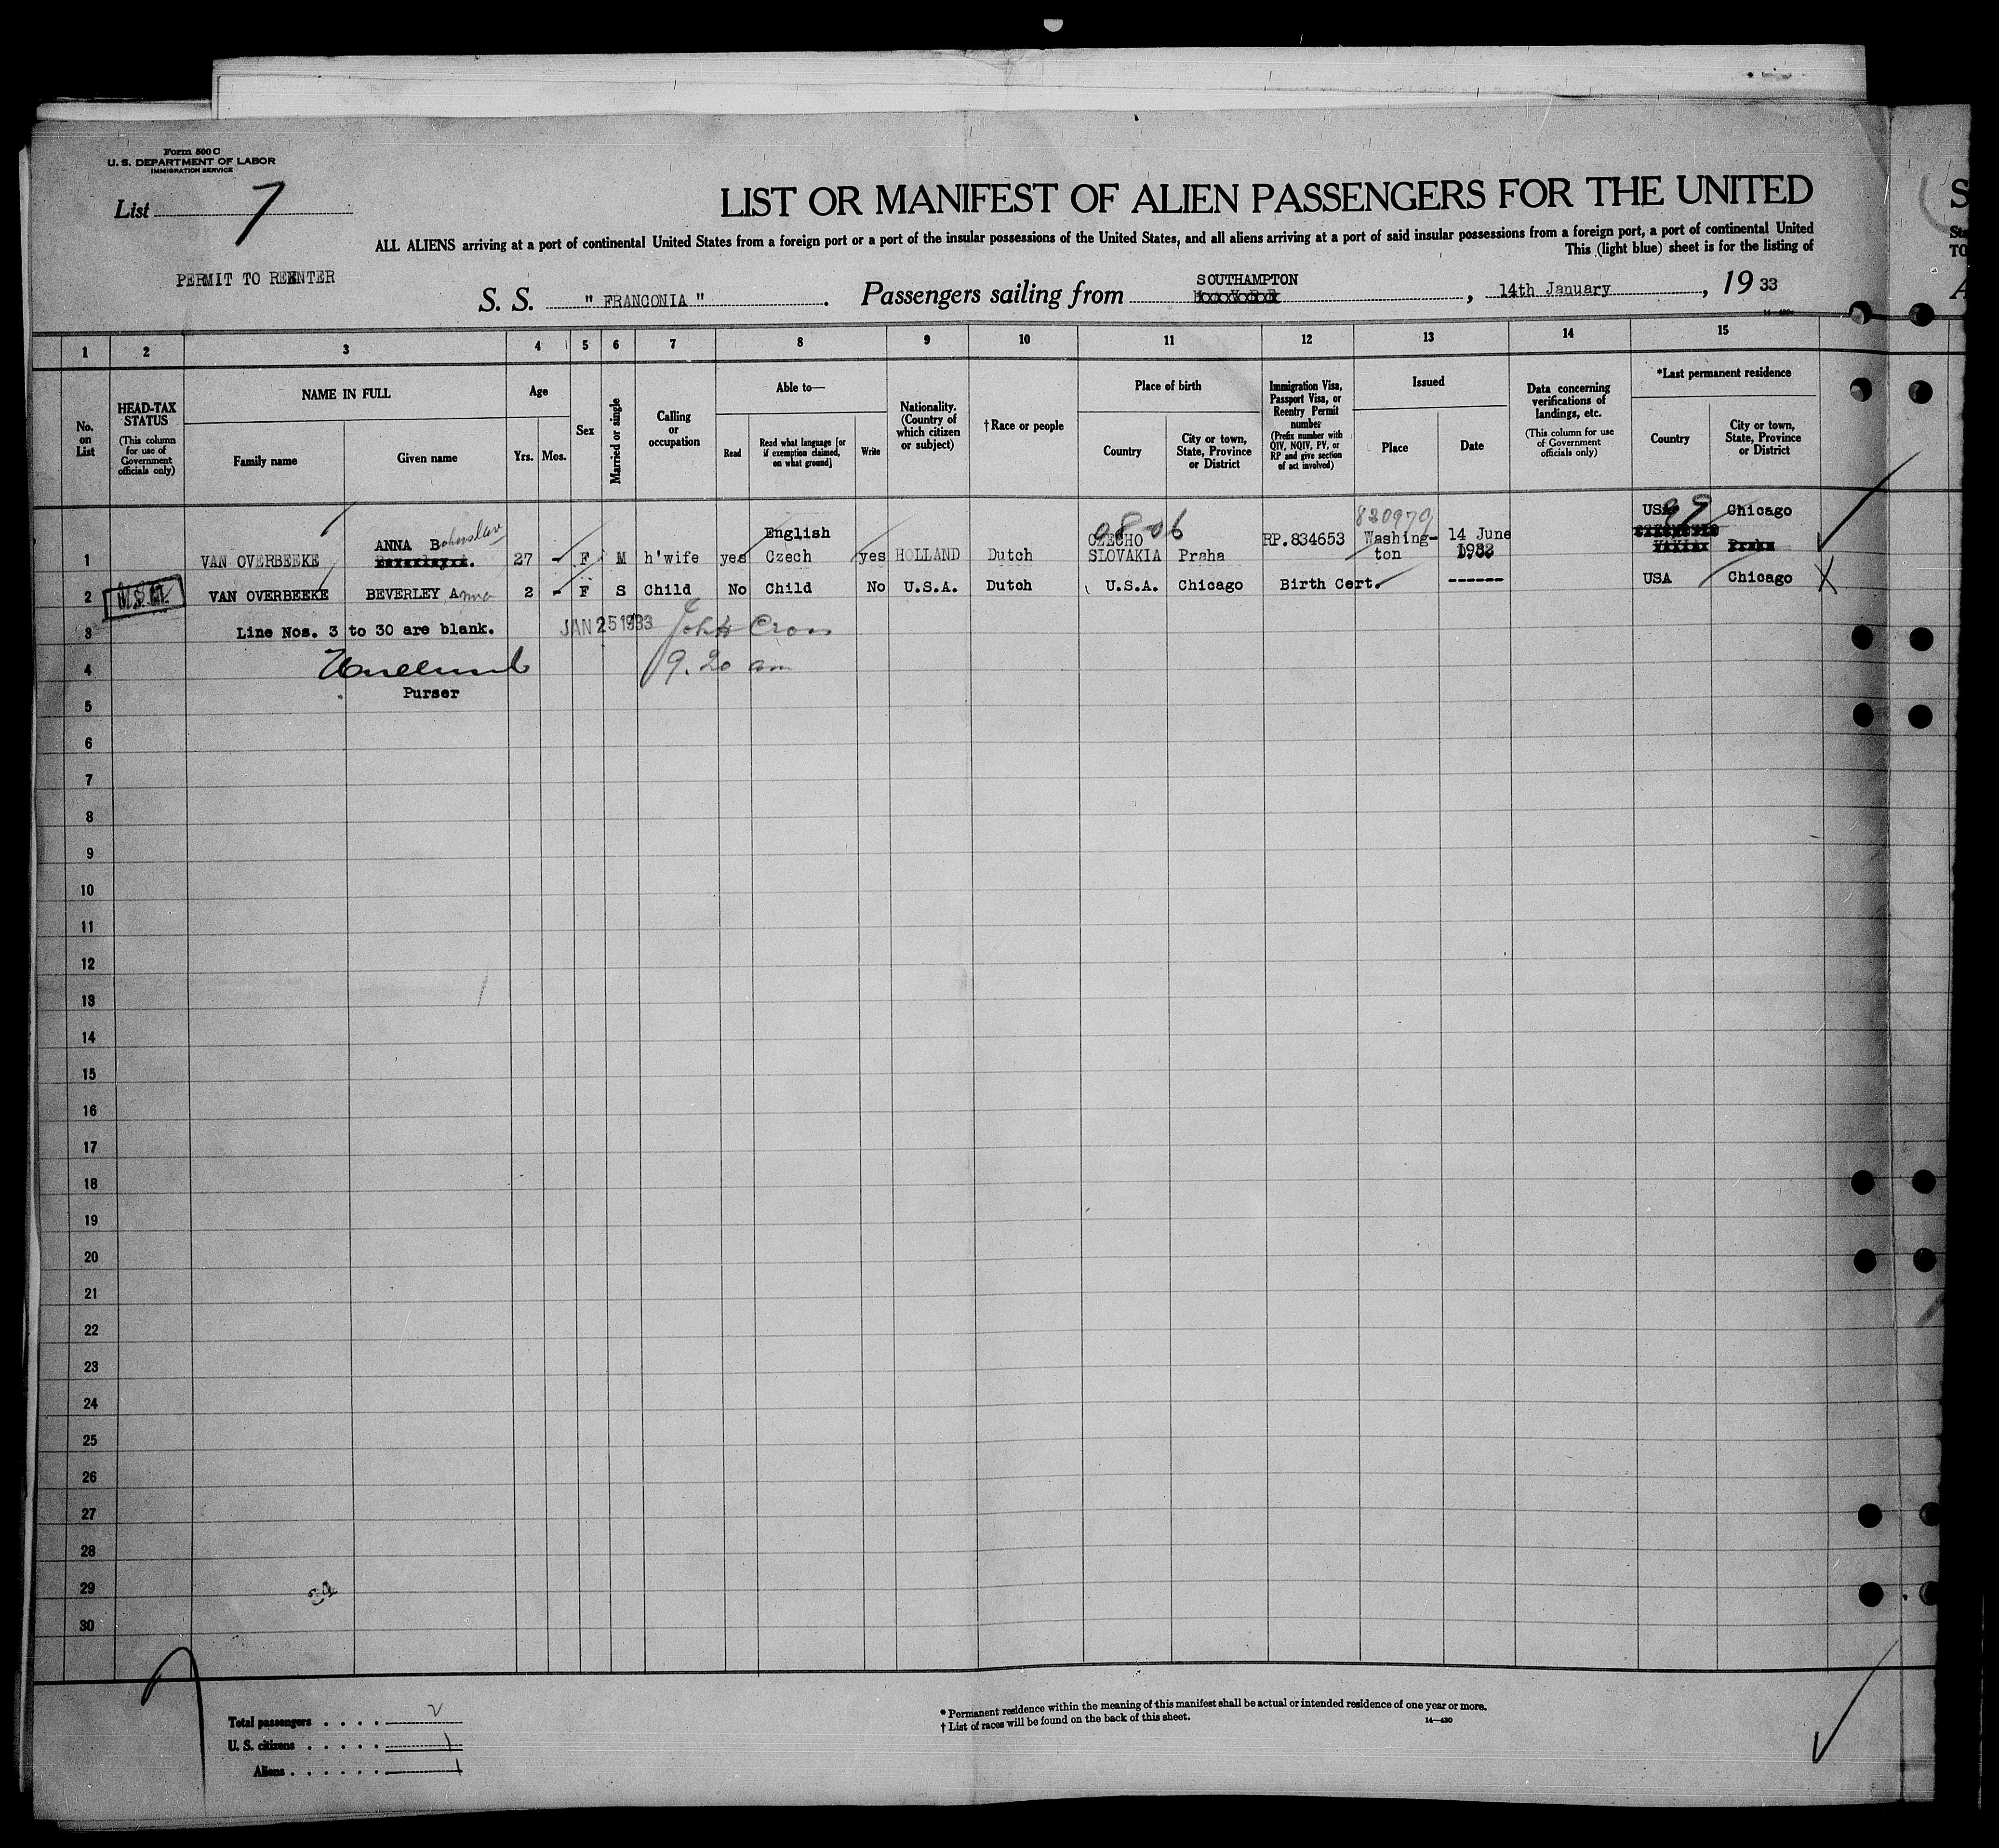 Form 500 C
U. S. DEPARTMENT OF LABOR
IMMIGRATION SERVICE
List 7
LIST OR MANIFEST OF ALIEN PASSENGERS FOR THE UNITED
S
ALL ALIENS arriving at a port of continental United States from a foreign port or a port of the insular possessions of the United States, and all aliens arriving at a port of said insular possessions from a foreign port, a port of continental United
This (light blue) sheet is for the listing of
PERMIT TO REENTER
S. S. " FRANCONIA " . Passengers sailing from SOUTHAMPTON , 14th January , 19 33
1 2 3 4 5 6 7 8 9 10 11 12 13 14 15
No. on List
HEAD-TAX STATUS
(This column for use of Government officials only)
NAME IN FULL
Family name
Given name
Age
Yrs. Mos.
Sex
Married or single
Calling or occupation
Able to—
Read
Read what language [or if exemption claimed, on what ground]
Write
Nationality. (Country of which citizen or subject)
† Race or people
Place of birth
Country
City or town, State, Province or District
Immigration Visa, Passport Visa, or Reentry Permit number
(Prefix number with QIV, NQIV, PV, or RP and give section of act involved)
Issued
Place
Date
Data concerning verifications of landings, etc.
(This column for use of Government officials only)
*Last permanent residence
Country
City or town, State, Province or District
1 VAN OVERBEEKE ANNA Bohuslav 27 - F M h'wife yes English Czech yes HOLLAND Dutch CZECHO SLOVAKIA Praha RP.834653 820979 Washing-ton 14 June 1932 USA Chicago
2 VAN OVERBEEKE BEVERLEY Anna 2 - F S Child No Child No U.S.A. Dutch U.S.A. Chicago Birth Cert. ------ USA Chicago X
3 Line Nos. 3 to 30 are blank. JAN 25 1933 John Cross
4 9.20 am
Purser
5
6
7
8
9
10
11
12
13
14
15
16
17
18
19
20
21
22
23
24
25
26
27
28
29
30
Total passengers . . . . 2
U. S. citizens . . . . . 1
Aliens . . . . . . 1
* Permanent residence within the meaning of this manifest shall be actual or intended residence of one year or more.
† List of races will be found on the back of this sheet.
14—430